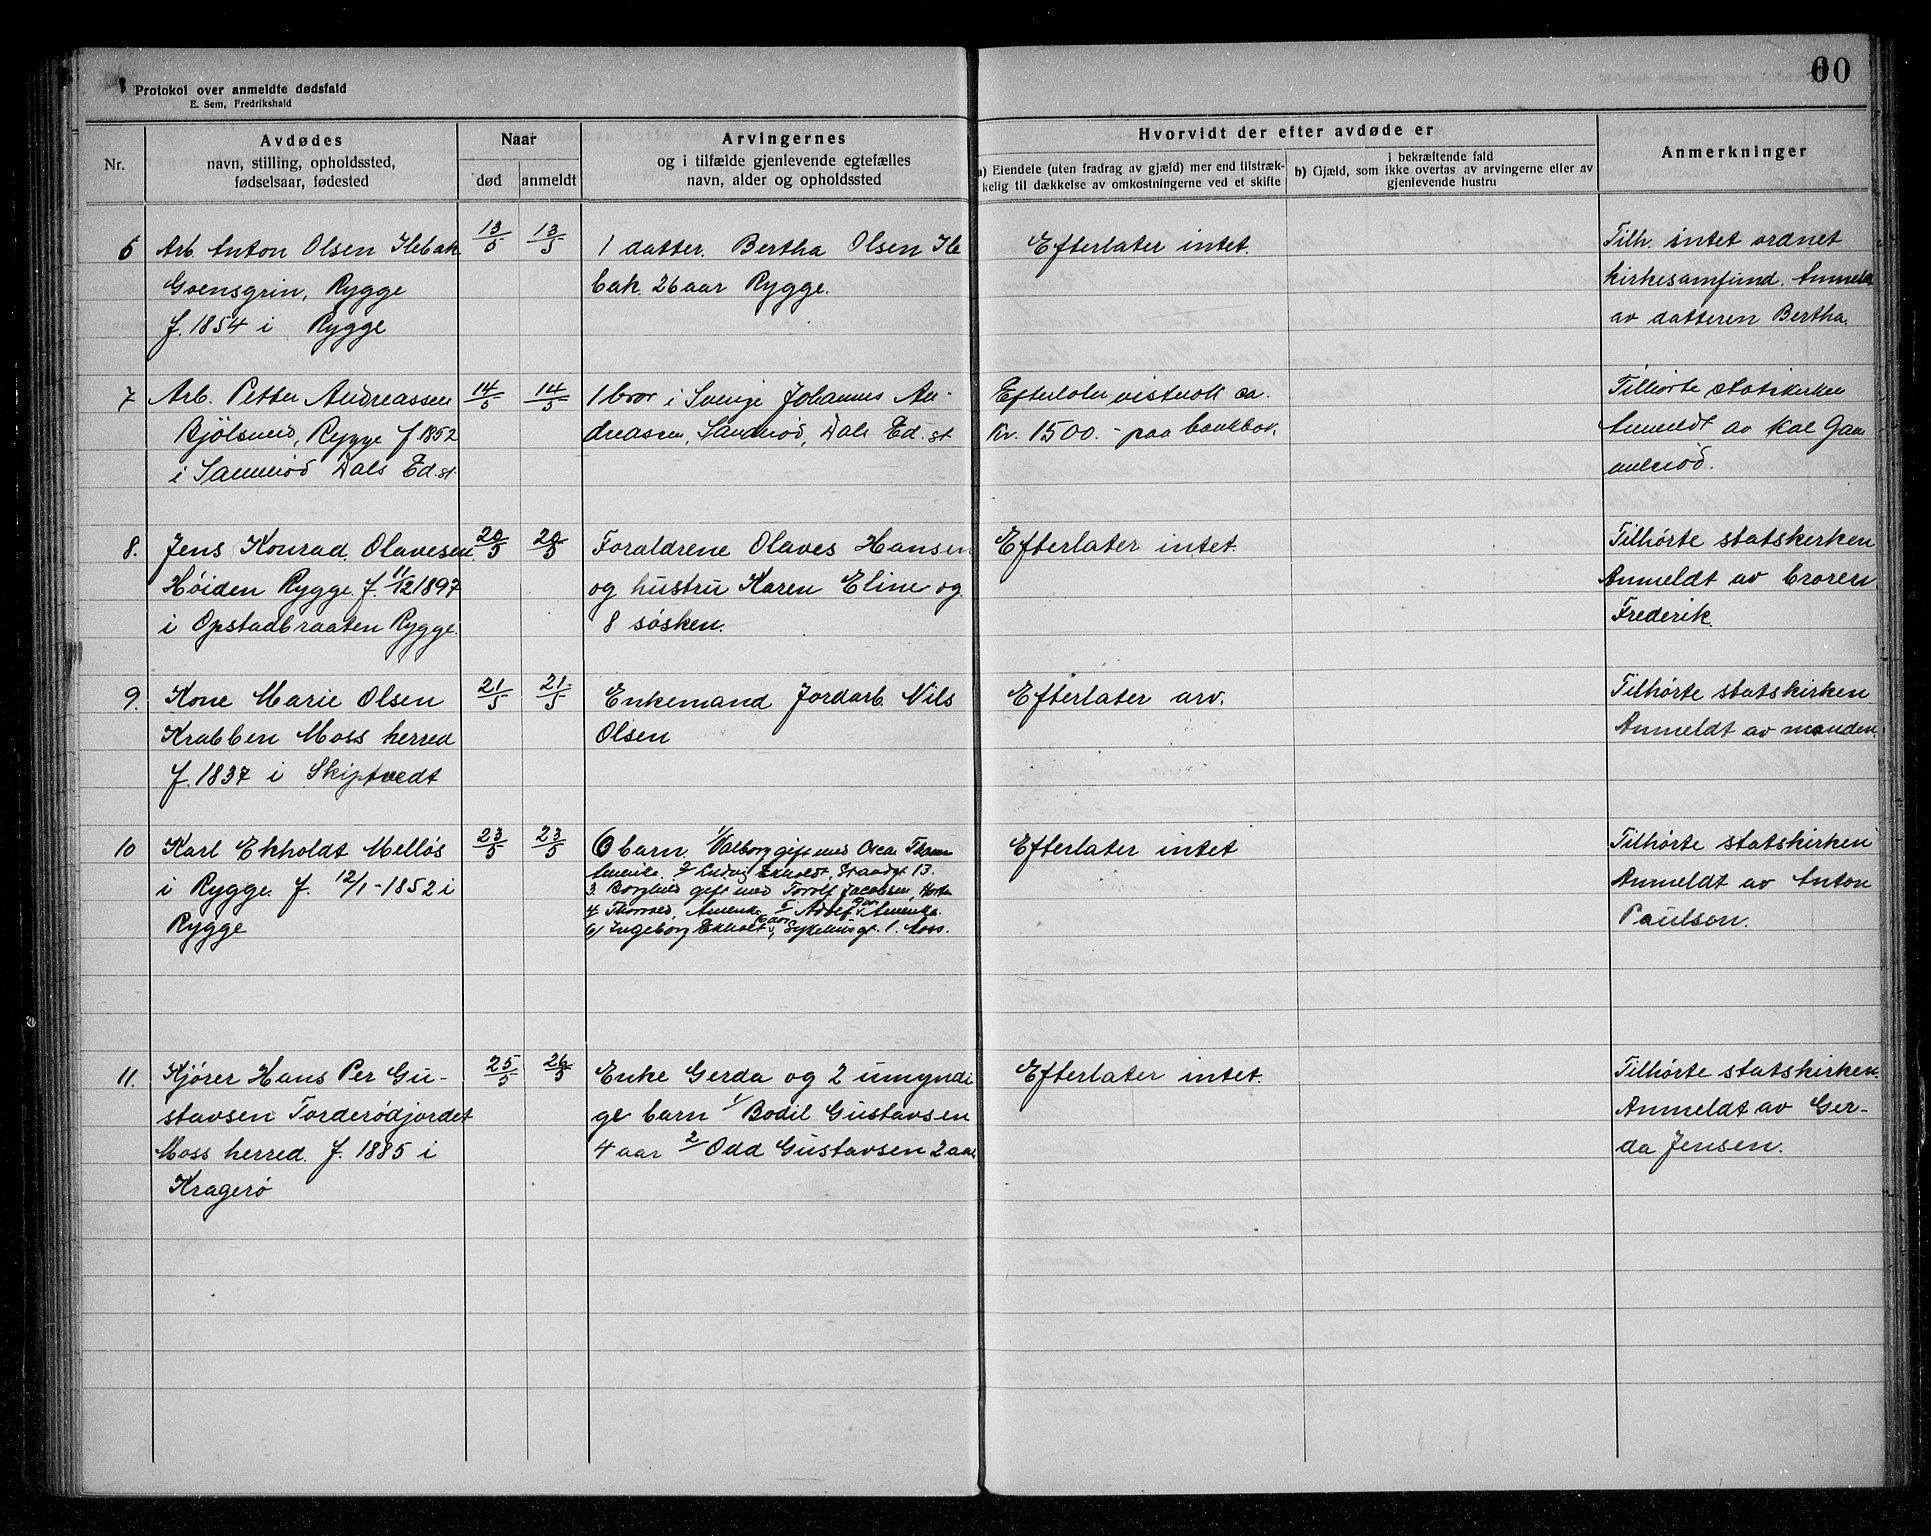 60
Protokol over anmeldte dødsfald
E. Sem, Fredrikshald
Nr.
Avdødes
navn, stilling, opholdssted,
fødselsaar, fødested
Naar
død anmeldt
Arvingernes
og i tilfælde gjenlevende egtefælles
navn, alder og opholdssted
Hvorvidt der efter avdøde er
a) Eiendele (uten fradrag av gjæld) mer end tilstræk-
kelig til dækkelse av omkostningerne ved et skifte
i bekræftende fald
b) Gjæld, som ikke overtas av arvingerne eller av
gjenlevende hustru
Anmerkninger
6 Arb. Anton Olsen Ilebak
Goensgrin, Rygge
f. 1854 i Rygge
13/5 13/5
1 datter. Bertha Olsen Ile
bak. 26 aar Rygge.
Efterlater intet.
Tilh. intet ordnet
kirkesamfund. Anmeldt
av datteren Bertha.
7 Arb. Petter Andreassen
Rygge f. 1852
i Dals Ed. st
14/5 14/5
1 bror i Sverige Johannes An-
dreasen, Dals Ed. st
Efterlater vistnok ca.
Kr. 1500.- paa bankbok.
Tilhørte statskirken
Anmeldt av
8. Jens Konrad Olavesen.
Høiden Rygge. f. 11/12 1897
i Opstadbraaten Rygge.
20/5 20/5
Foraldrene Olaves Hansen
og hustru Karen Eline og
8 søsken.
Efterlater intet.
Tilhørte statskirken
Anmeldt av broren
Frederik.
9. Kone Marie Olsen
Krabben Moss herred
f. 1837 i Skiptvedt
21/5 21/5
Enkemand Jordarb. Nils
Olsen
Efterlater arv.
Tilhørte statskirken
Anmeldt av manden.
10 Karl Ekholdt Melløs
i Rygge. f. 12/1-1852 i
Rygge
23/5 23/5
6 barn. 1/ Valborg gift med Oscar
Amerika. 2/ Ludvig Ekholdt, Strandgt 13.
3. Borghild gift med Torolf Jacobsen,
4/ Amerika 5/ Adolf Amerika.
6) Ingeborg Ekholt, Sykehusgt. 1. Moss.
Efterlater intet
Tilhørte statskirken
Anmeldt av Anton
Paulsen.
11. Kjører Hans Per Gu-
stavsen Torderødjordet
Moss herred. f. 1885 i
Kragerø
25/5 26/5
Enke Gerda og 2 umyndi
ge barn 1/ Bodil Gustavsen
4 aar 2/ Odd Gustavsen 2 aar
Efterlater intet.
Tilhørte statskirken.
Anmeldt av Ger-
da Jensen.